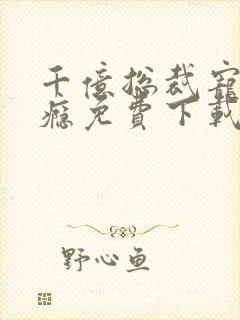 千億总裁寵
癮免費下載
野心鱼